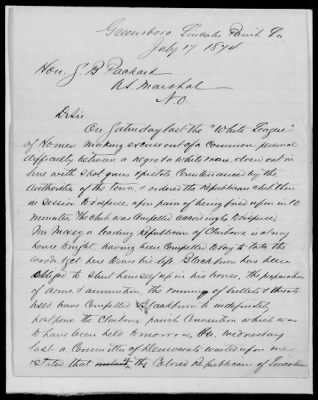 Greensboro, Lincoln Parish La
July 17 1874
Hon. S. B Packard
U.S. Marshal
N.O.
Dr Sir
On Saturday last the "White League"
of Homer making excuse out of a common personal
difficulty between a negro & white man, drew out in
line with shot guns & pistols countenanced by the
authorities of the town, & ordered the Republican club then
in session to disperse upon pain of being fired upon in 10
minutes. The club was compelled accordingly to disperse.
Mr Maxey a leading Republican of Claiborne is at my
house tonight, having been compelled to day to take the
woods & get here to save his life. Blackburn has been
obliged to shut himself up in his house, the preparation
of arms & ammunition, the running of bullets & threats
used have compelled Blackburn to indefinitely
postpone the Claiborne parish Convention which was
to have been held tomorrow. On wednesday
last a Committee of Democrats waited upon me
& stated that the Colored Republicans of Lincoln